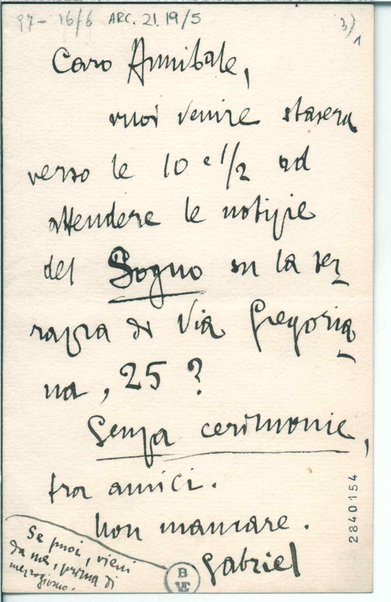 97-16/6 ARC. 21, 19/5
3)/1
Caro Annibale,
vuoi venire stasera
verso le 10 e 1/2 ad
attendere le notizie
del Sogno su la ter
razza di Via Gregoria
na, 25?
Senza cerimonie,
tra amici.
Non mancare.
Gabriel
Se puoi, vieni
da me, prima di
mezzogiorno.
B
VE
2840154